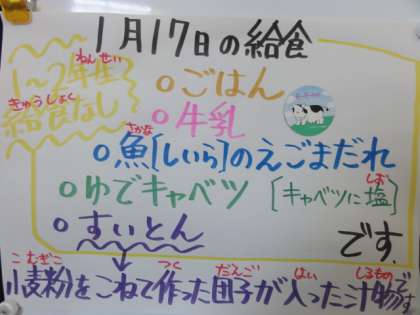 1月17日の給食
1～2年生
ねんせい
給食なし
きゅうしょく
○ごはん
○牛乳
○魚[しいら]のえごまだれ
さかな
○ゆでキャベツ [キャベツに塩]
しお
○すいとん です。
小麦粉をこねて作った団子が入った汁物です
こむぎこ つく だんご はい しるもの